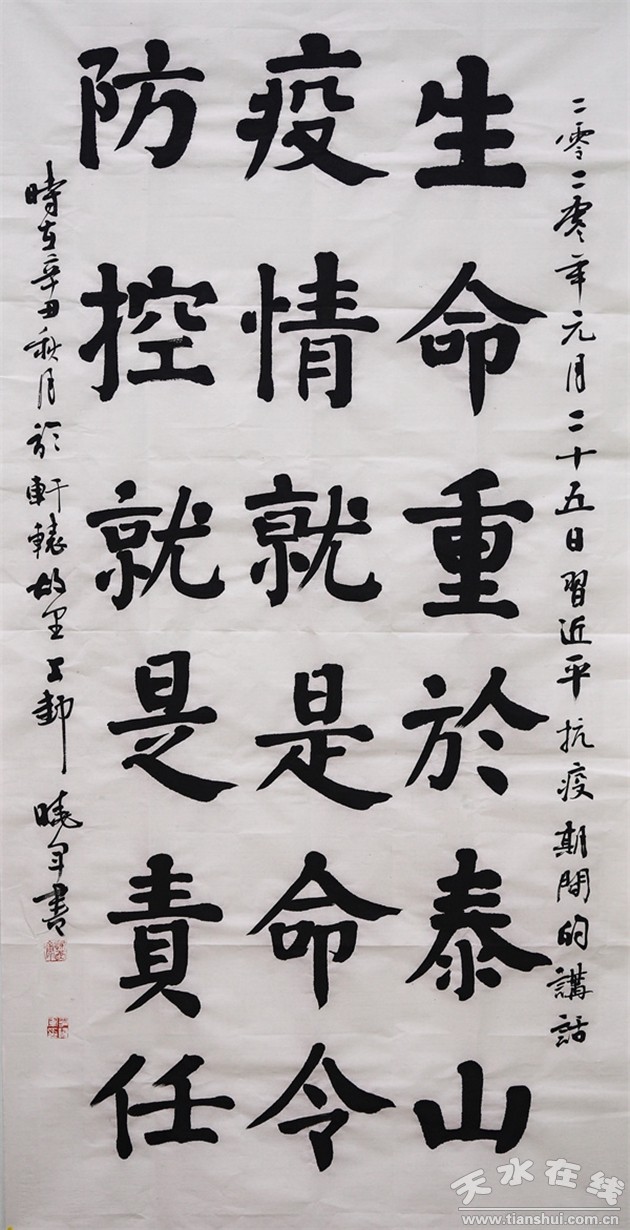 二零二零年元月二十五日習近平抗疫期間的講話
生命重於泰山
疫情就是命令
防控就是責任
時在辛丑秋月於軒轅故里上邽
曉年書
天水在线
www.tianshui.com.cn